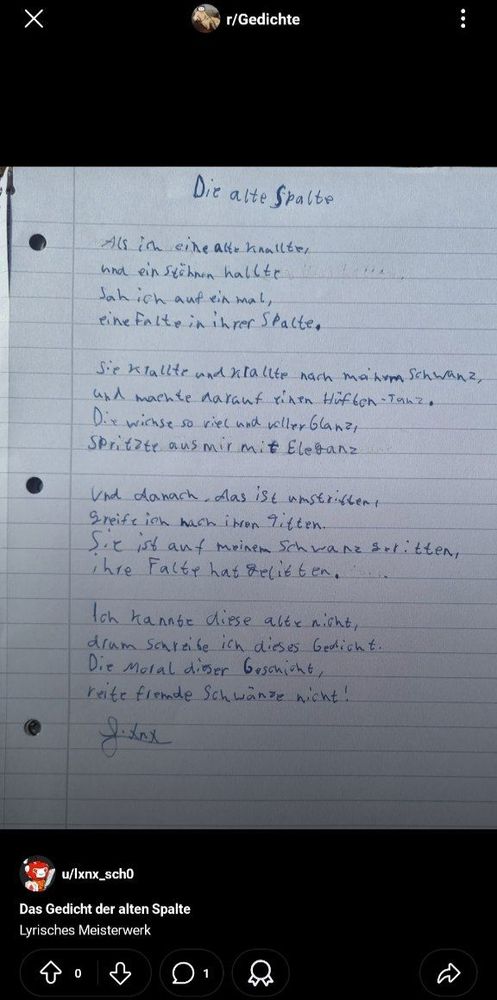 r/Gedichte
Die alte Spalte
Als ich eine alte knallte,
und ein stöhnen hallte
Sah ich auf ein mal,
eine Falte in ihrer Spalte.
Sie krallte und krallte nach meinem Schwanz,
und machte darauf einen Hüften-Tanz.
Die wichse so viel und voller Glanz,
Spritzte aus mir mit Eleganz
Und danach, das ist umstritten,
greife ich nach ihren Titten.
Sie ist auf meinem Schwanz geritten,
ihre Falte hat gelitten.
Ich kannte diese alte nicht,
drum schreibe ich dieses Gedicht.
Die Moral dieser Geschicht,
reite fremde Schwänze nicht!
u/lxnx_sch0
Das Gedicht der alten Spalte
Lyrisches Meisterwerk
0
1